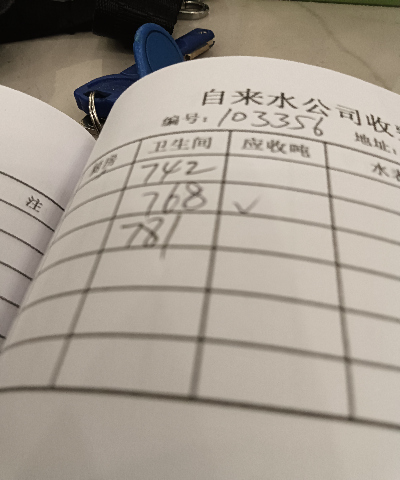 自来水公司收
编号:103356 地址:
注 厨房 卫生间 应收吨 水
742
768 ✓
781